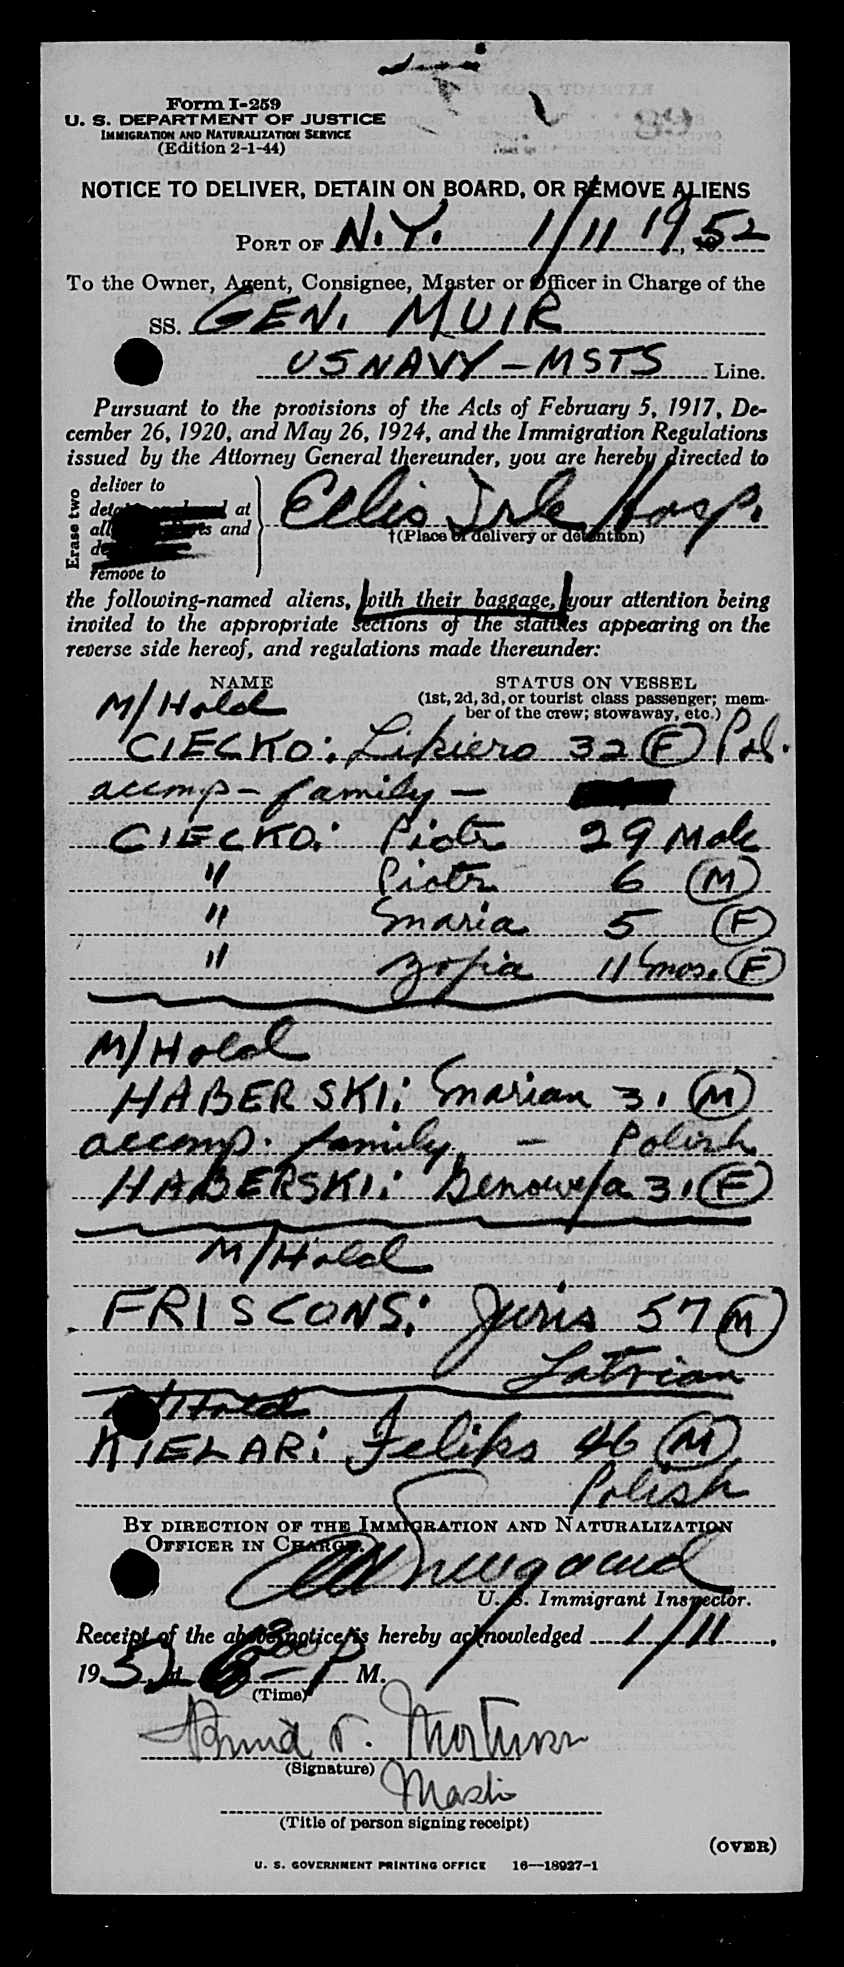 89
Form I-259
U. S. DEPARTMENT OF JUSTICE
IMMIGRATION AND NATURALIZATION SERVICE
(Edition 2-1-44)
NOTICE TO DELIVER, DETAIN ON BOARD, OR REMOVE ALIENS
PORT OF N.Y. 1/11 19, 52
To the Owner, Agent, Consignee, Master or Officer in Charge of the
SS. GEN. MUIR
US NAVY - MSTS Line.
Pursuant to the provisions of the Acts of February 5, 1917, De-
cember 26, 1920, and May 26, 1924, and the Immigration Regulations
issued by the Attorney General thereunder, you are hereby directed to
Erase two
deliver to
at
and
remove to
Ellis Isle Hosp.
†(Place of delivery or detention)
the following-named aliens, with their baggage, your attention being
invited to the appropriate sections of the statutes appearing on the
reverse side hereof, and regulations made thereunder:
NAME STATUS ON VESSEL
(1st, 2d, 3d, or tourist class passenger; mem-
ber of the crew; stowaway, etc.)
M/Hold
CIECKO: 32 F Pol.
accmp - family -
CIECKO: Piotr 29 Male
" Piotr 6 M
" Maria 5 F
" Zofia 11 mos. F
M/Hold
HABERSKI: Marian 31 M
accomp. family - Polish
HABERSKI: Genowefa 31 F
M/Hold
FRISCONS: Juris 57 M
Latvian
M/Hold
KIELAR: Feliks 46 M
Polish
BY DIRECTION OF THE IMMIGRATION AND NATURALIZATION
OFFICER IN CHARGE.
U. S. Immigrant Inspector.
Receipt of the above notice is hereby acknowledged 1/11,
1952 at P M.
(Time)
(Signature)
(Title of person signing receipt)
(OVER)
U. S. GOVERNMENT PRINTING OFFICE 16—18927-1